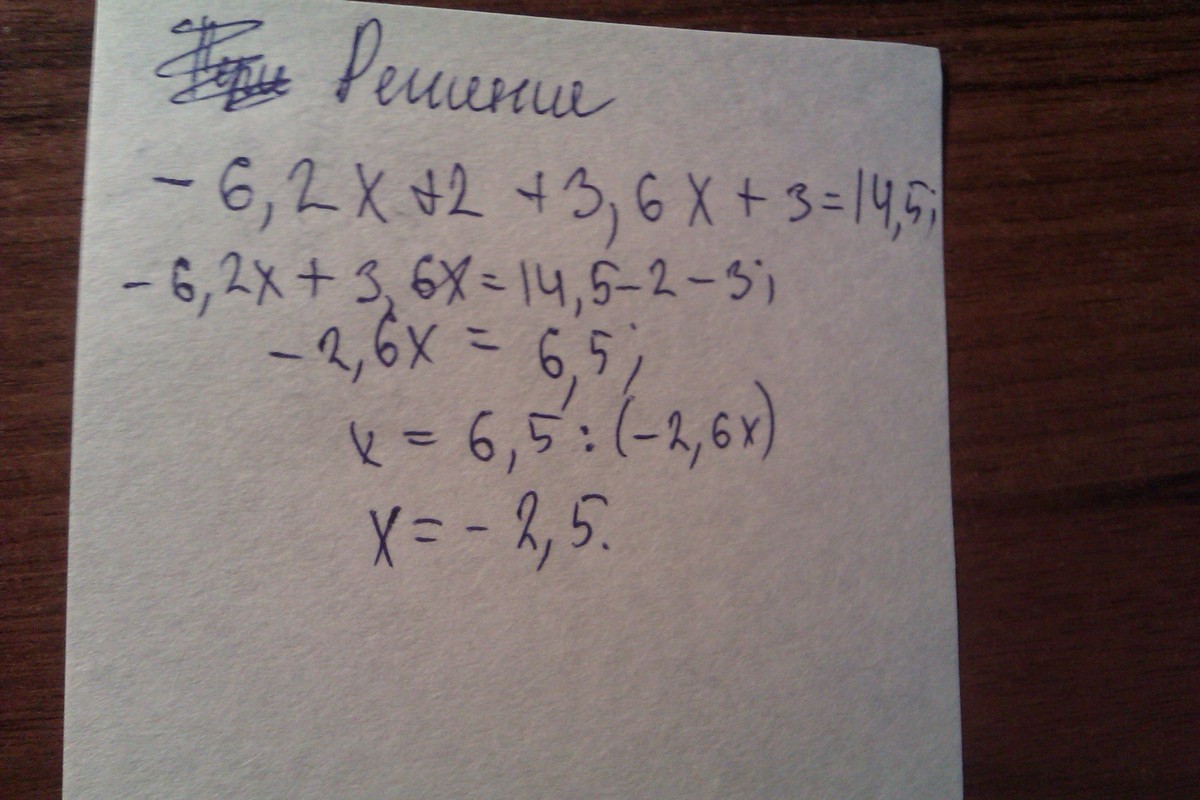 Решение
- 6,2x + 2 + 3,6x + 3 = 14,5;
- 6,2x + 3,6x = 14,5 - 2 - 3;
- 2,6x = 6,5;
x = 6,5 : (-2,6x)
x = - 2,5.